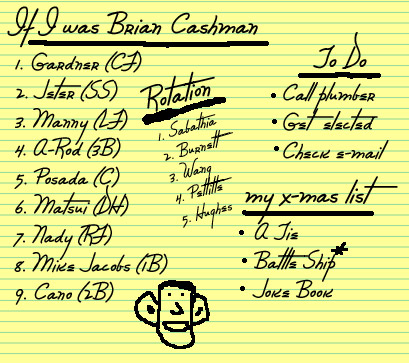 If I was Brian Cashman
1. Gardner (CF)
2. Jeter (SS)
3. Manny (LF)
4. A-Rod (3B)
5. Posada (C)
6. Matsui (DH)
7. Nady (RF)
8. Mike Jacobs (1B)
9. Cano (2B)
Rotation
1. Sabathia
2. Burnett
3. Wang
4. Pettitte
5. Hughes
To Do
• Call plumber
• Get elected
• Check e-mail
my x-mas list
• A Tie
• Battle Ship*
• Joke Book